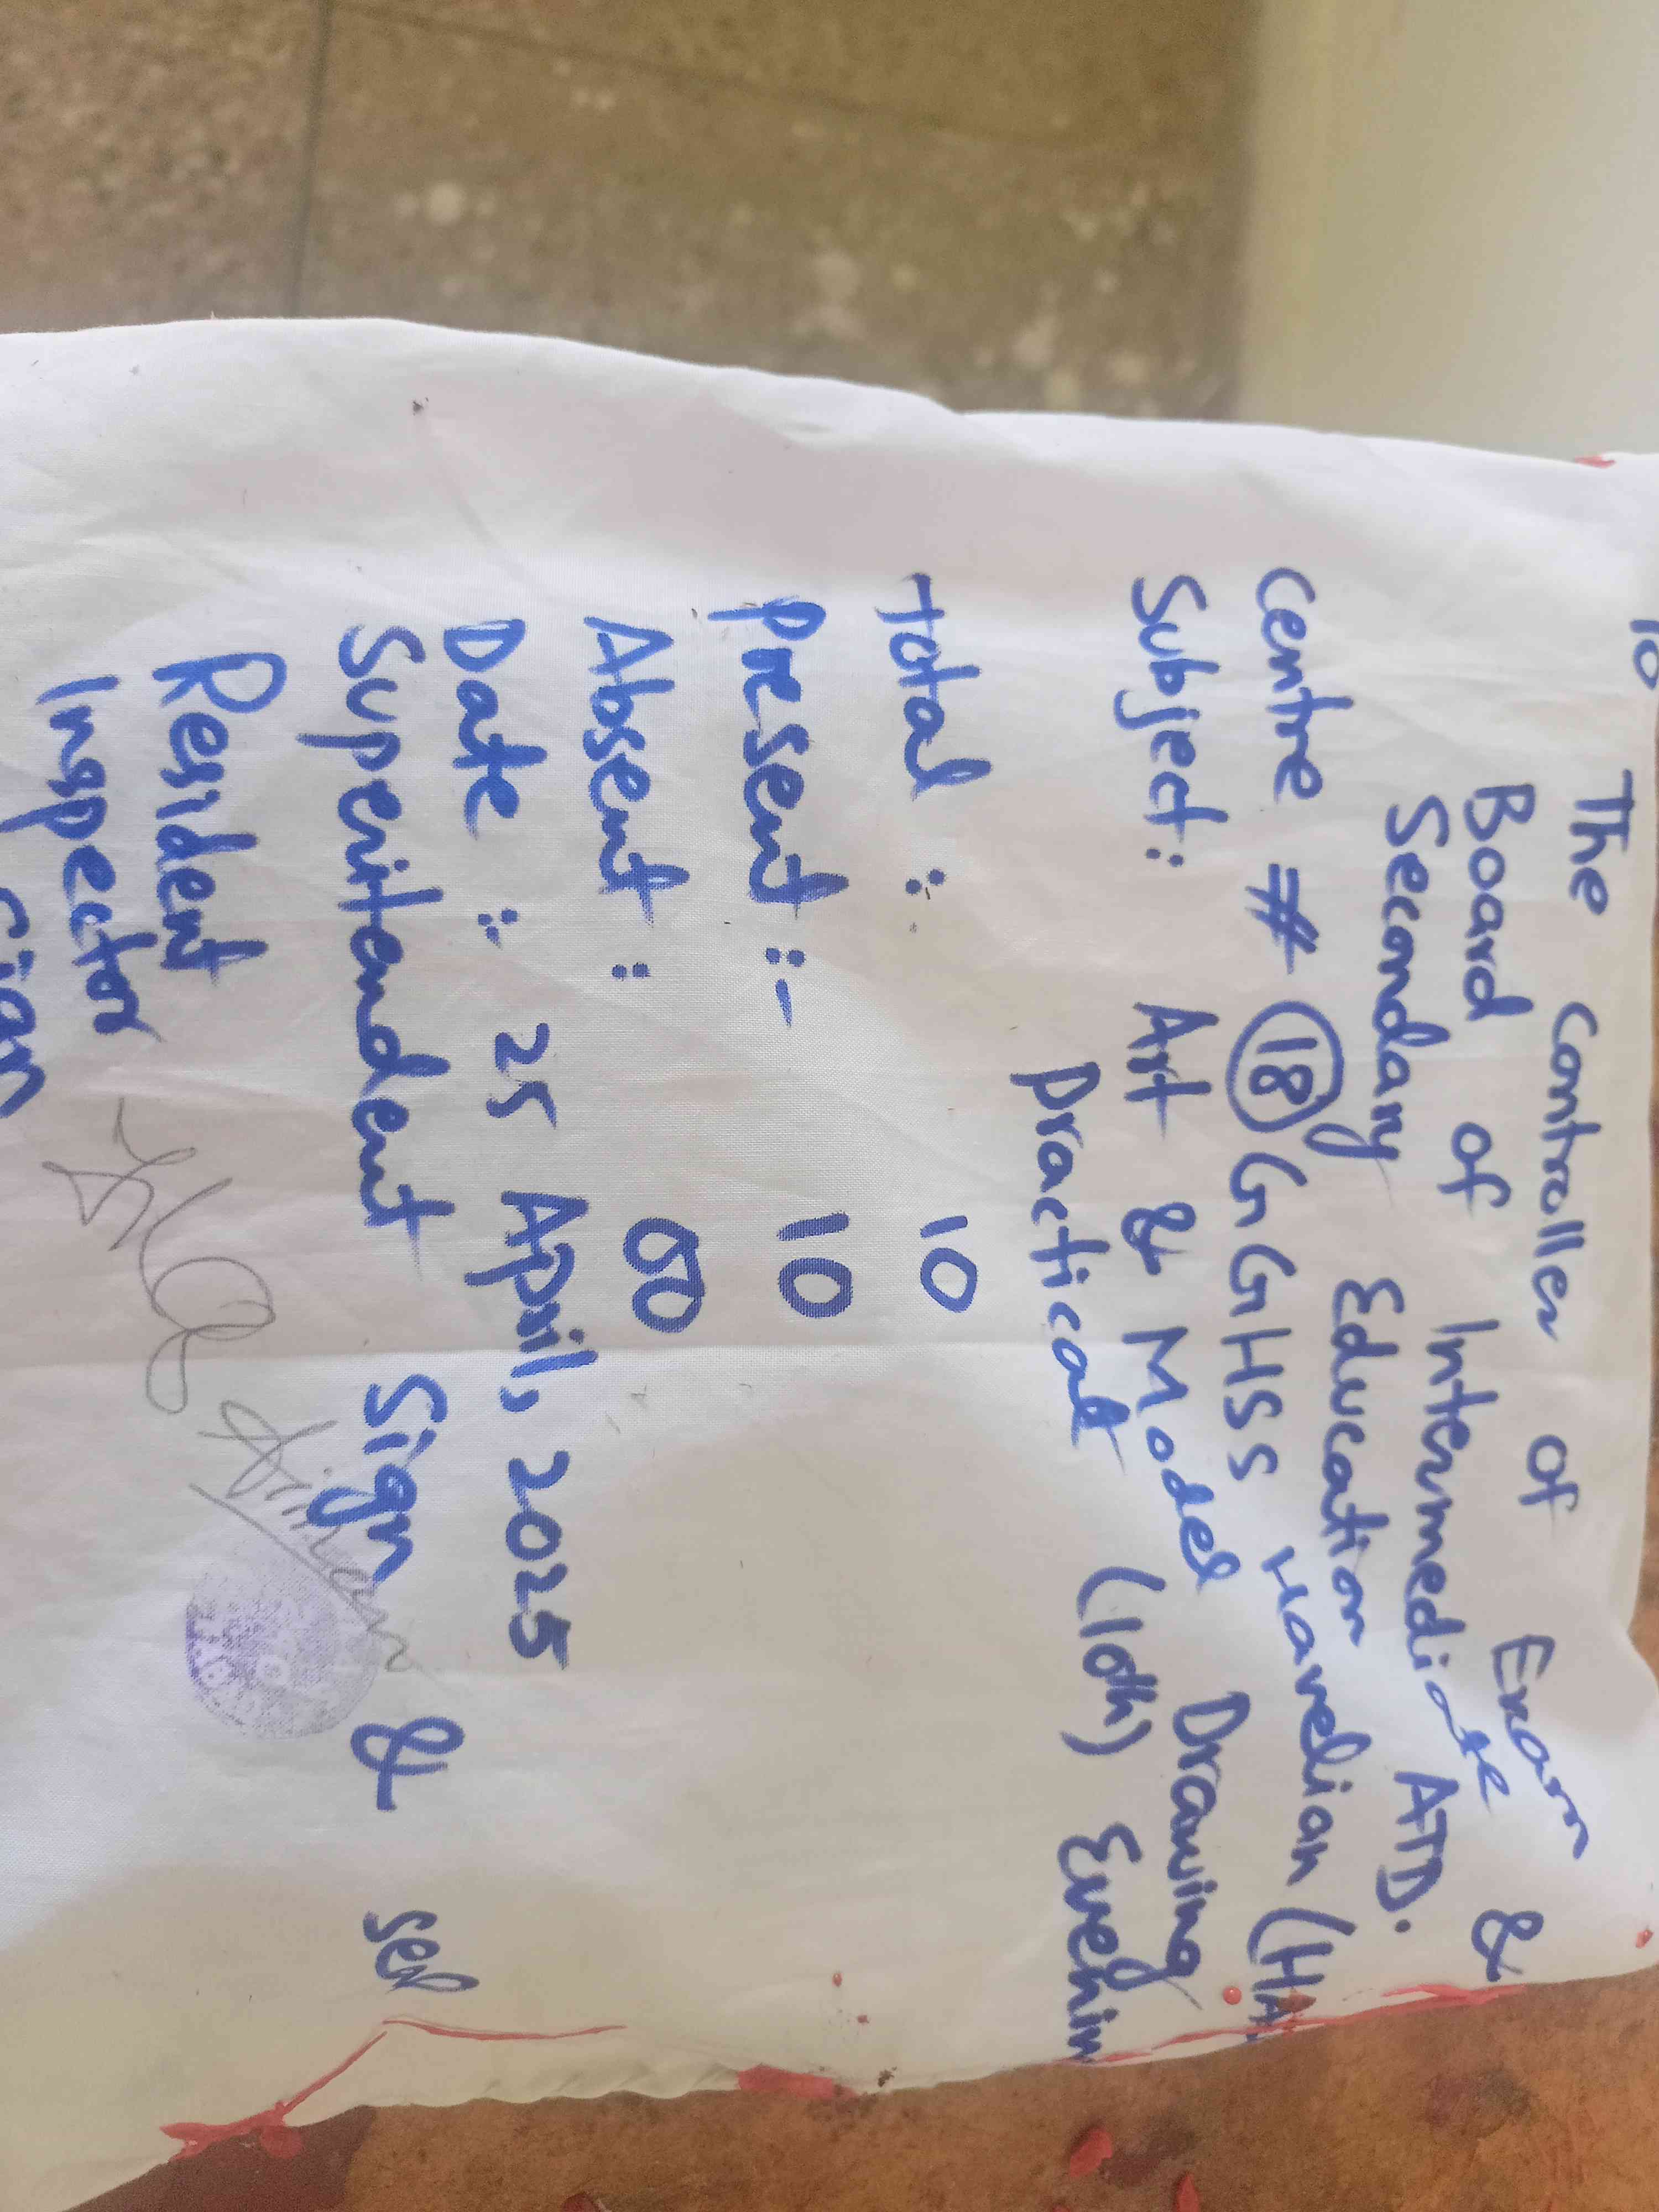 To
The Controller of Exam
Board of Intermediate &
Secondary Education ATD.
Centre # 18 GGHSS Havelian (HA
Subject: Art & Model Drawing
Practical (10th) Evenin
Total : 10
Present :- 10
Absent : 00
Date : 25 April, 2025
Superitendent Sign & sel
Resident
Inspector
Sign